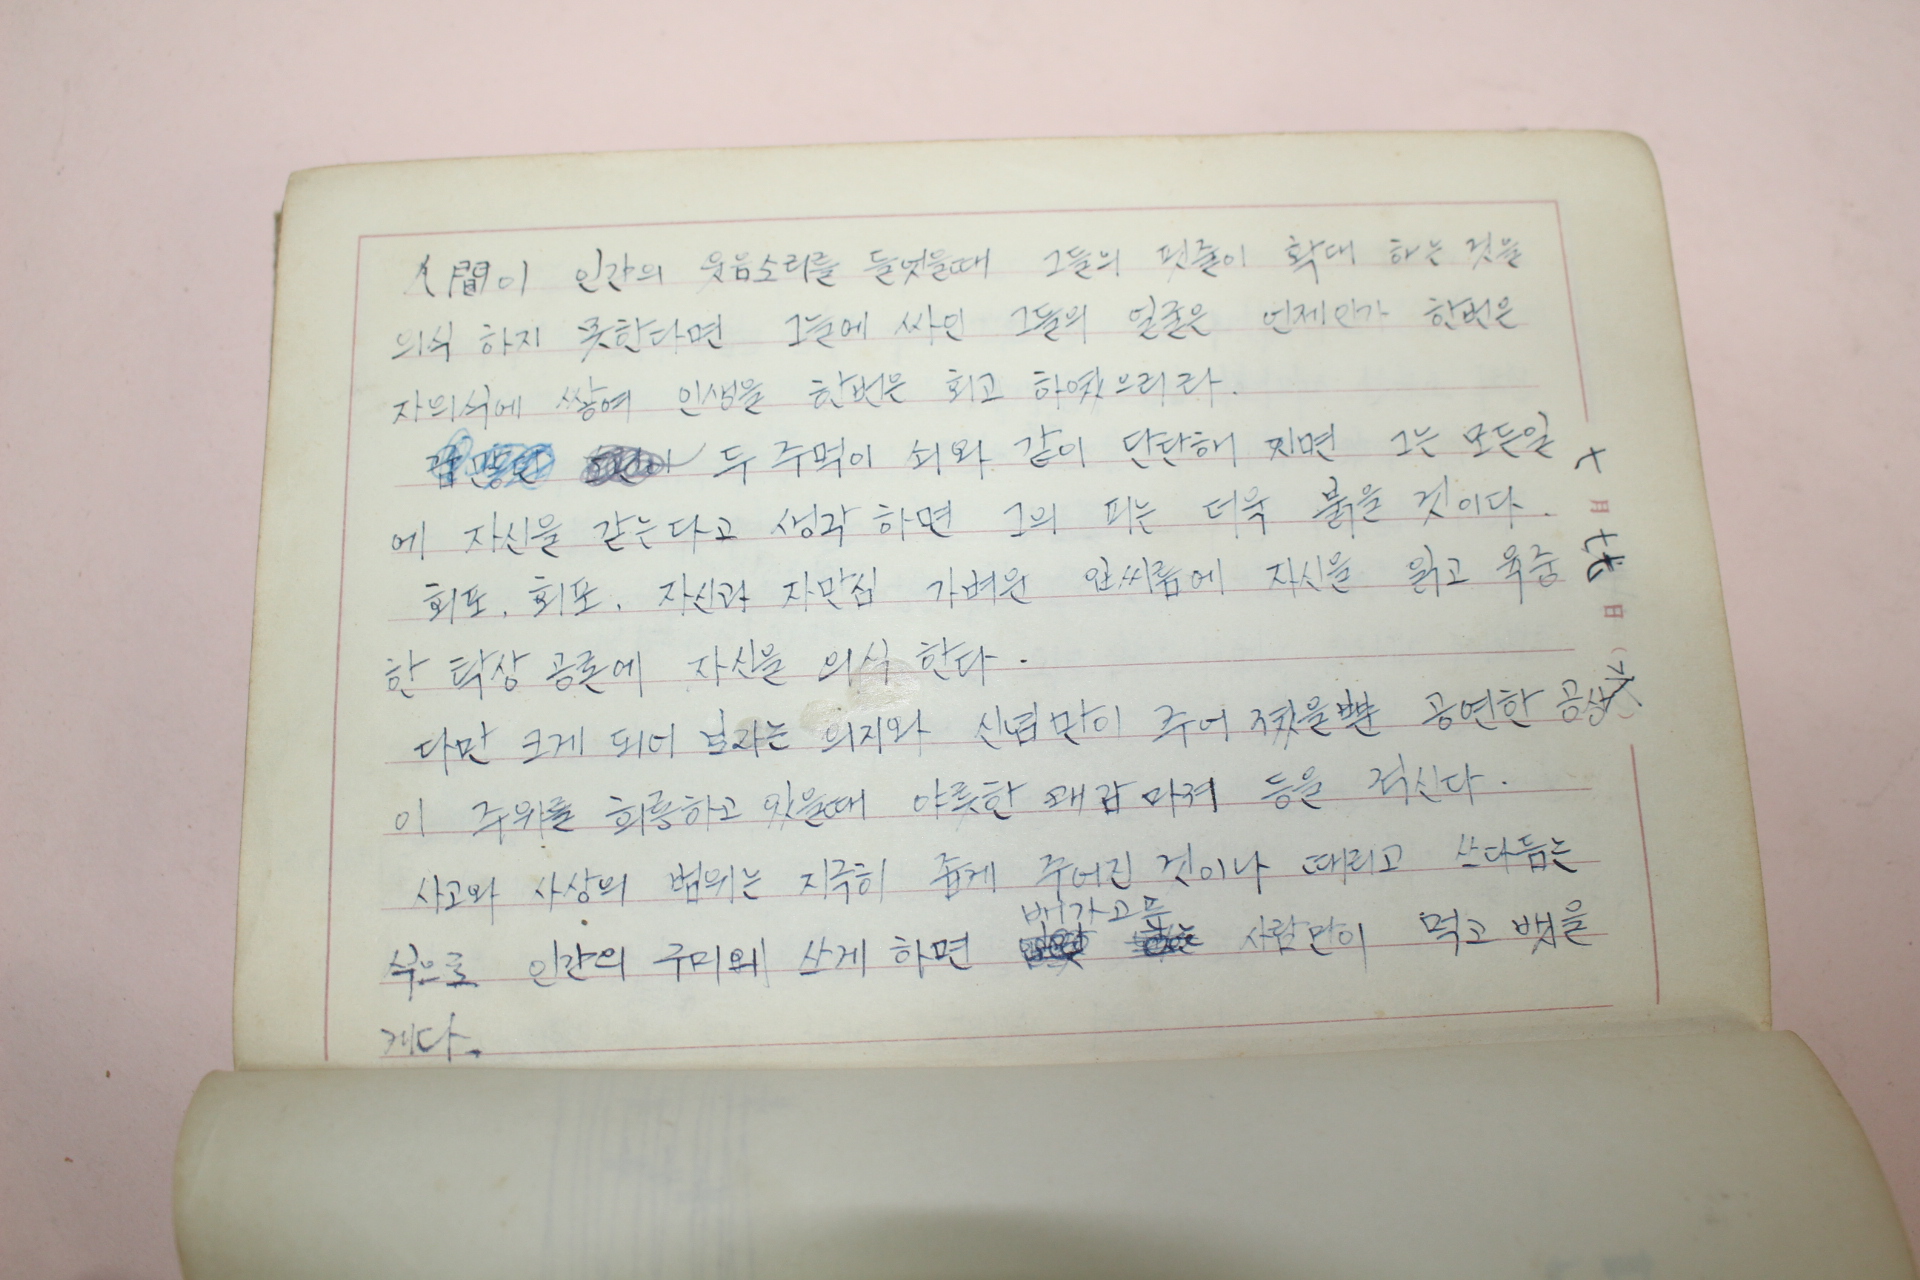 人間이 인간의 웃음소리를 들엇을때 그들의 핏줄이 확대 하는 것을
의식 하지 못한다면 그늘에 싸인 그들의 얼굴은 언제인가 한번은
자의식에 쌓여 인생을 한번은 회고 하였으리라.
두 주먹이 쇠와 같이 단단해 지면 그는 모든일
에 자신을 같는다고 생각 하면 그의 피는 더욱 붉을 것이다.
회포. 회포. 자신과 자만심 가벼운 에 자신을 읽고
한 탁상 공론에 자신을 의식 한다.
다만 크게 되어 보자는 의지와 신념만이 주어 졌을뿐 공연한 공상
이 주위를 희롱하고 있을때 야릇한 쾌감 마져 등을 적신다.
사고와 사상의 범위는 지극히 좁게 주어진 것이나 때리고 쓰다듬는
배가고픈
식으로 인간의 구미와 쓰게 하면 사람만이 먹고 뱃을
게다.
十
月
日